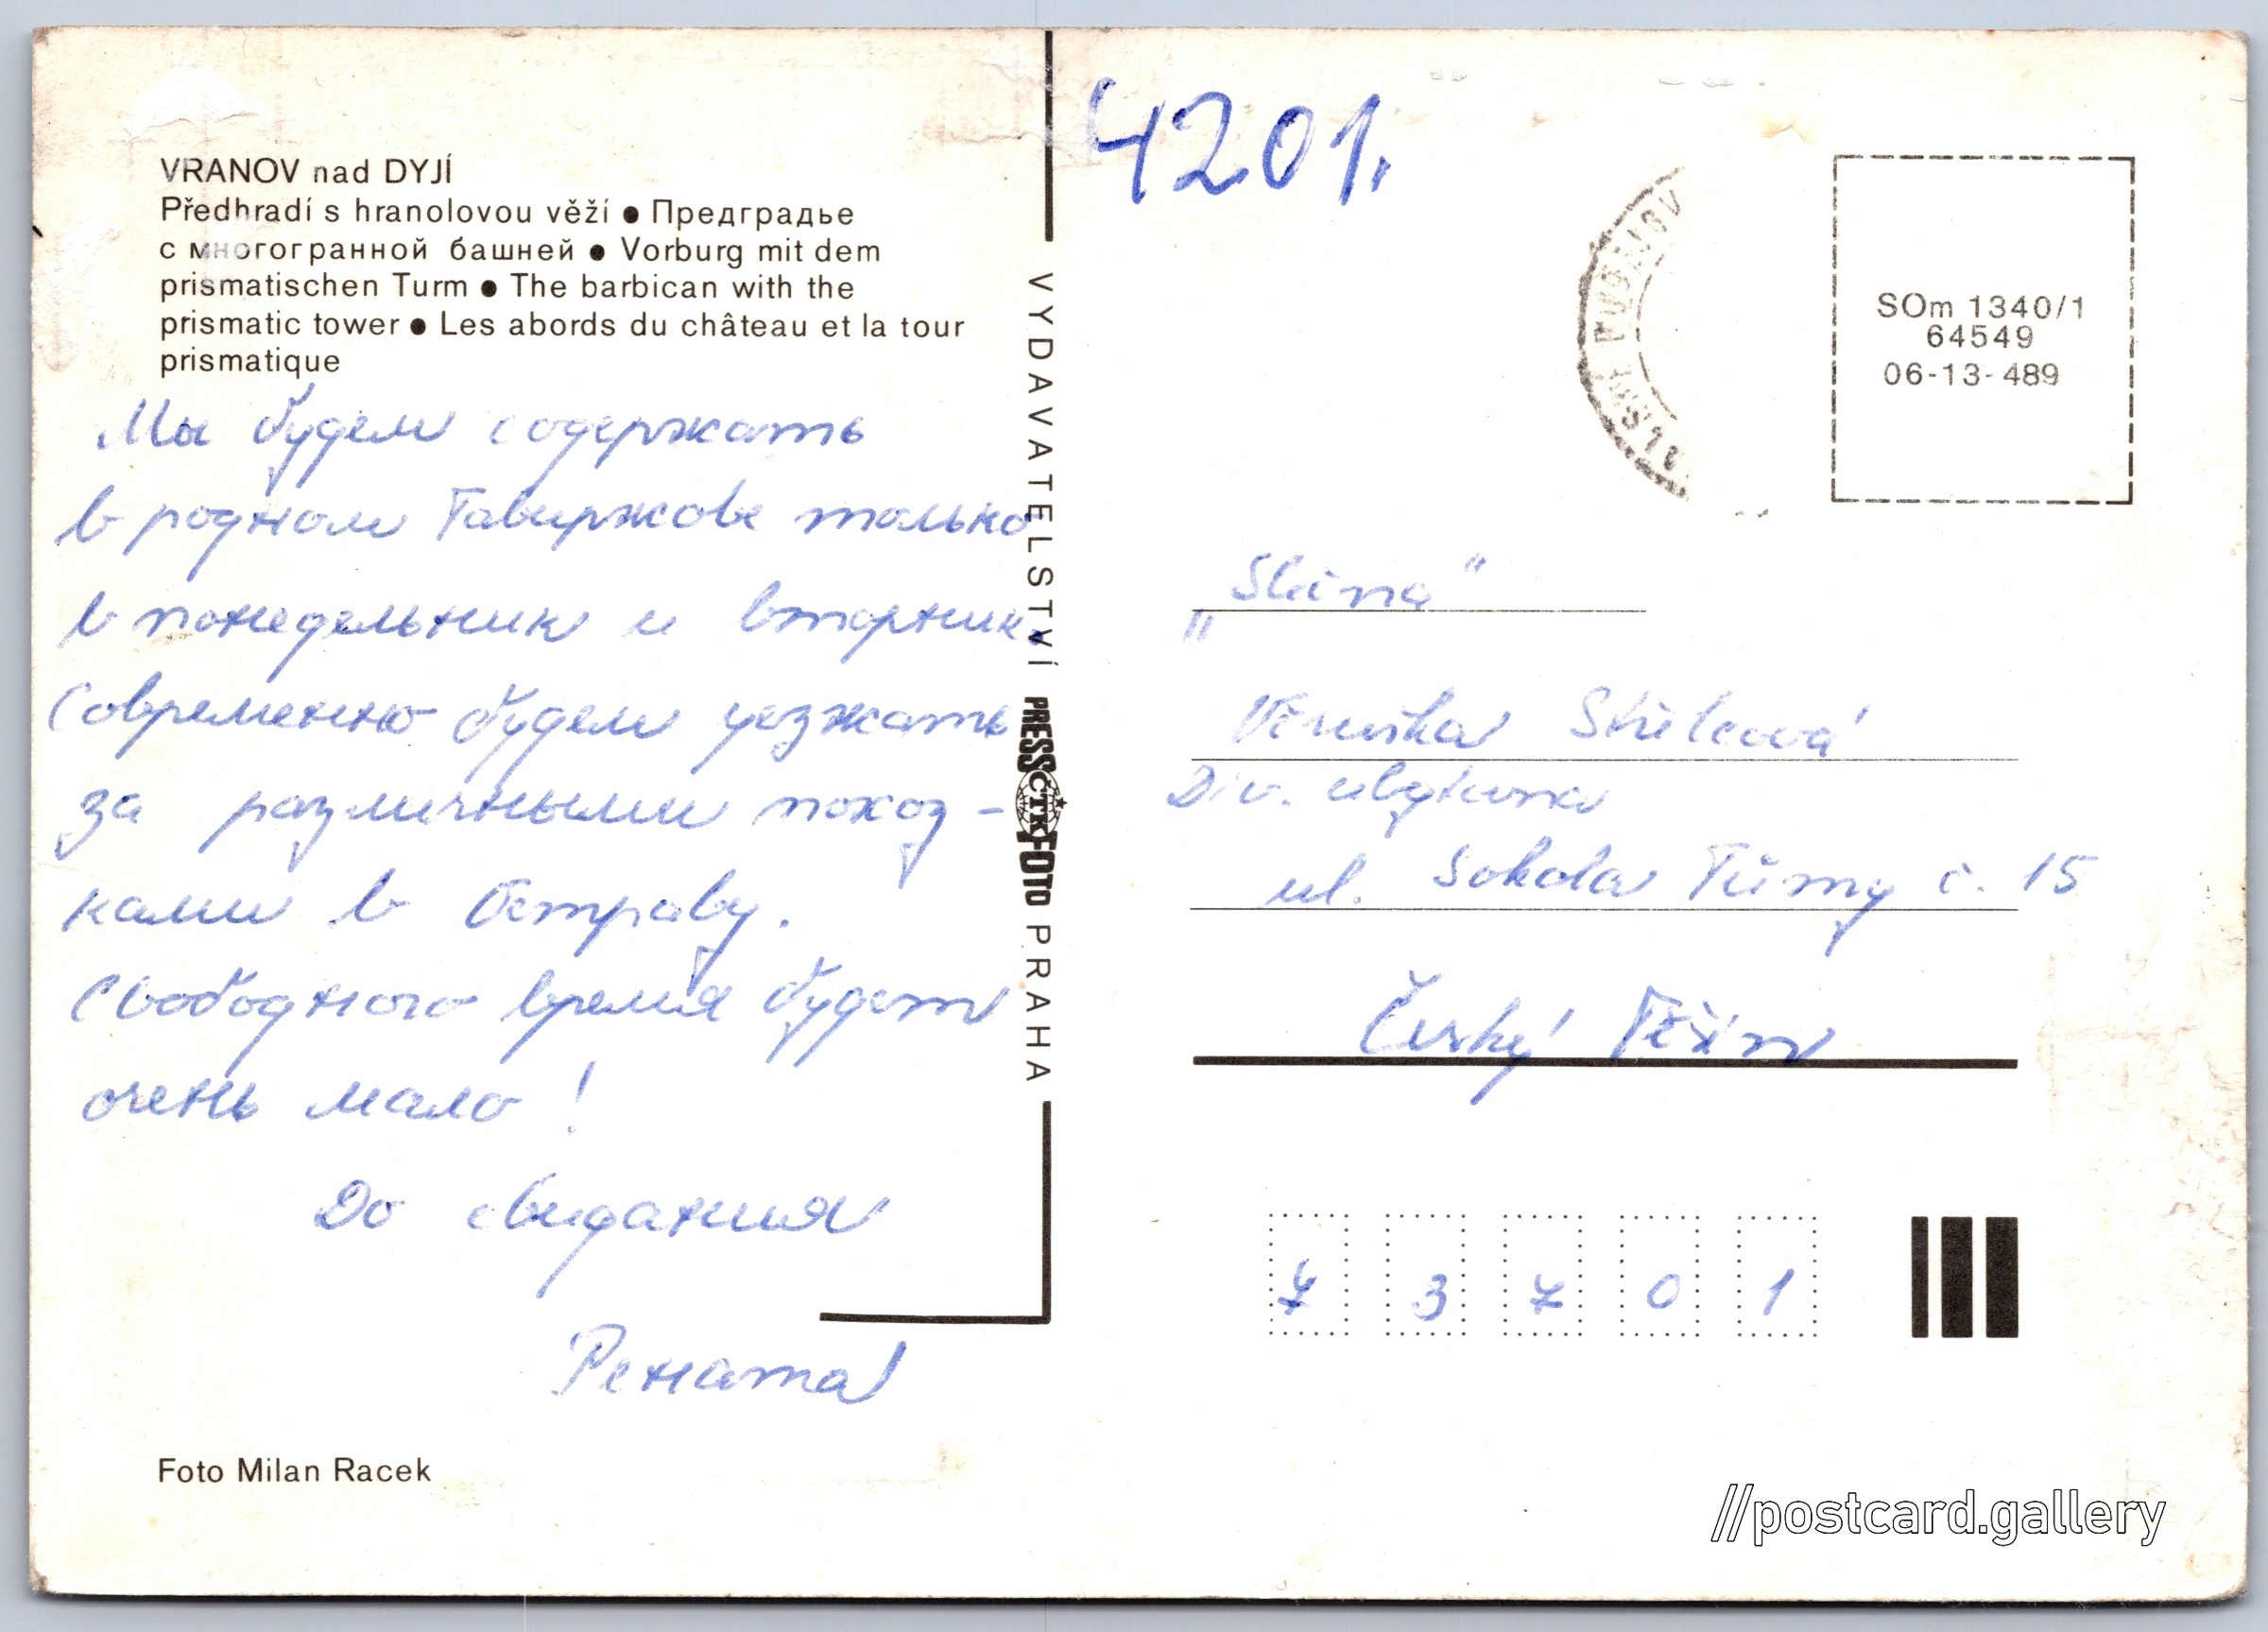 VRANOV nad DYJÍ
Předhradí s hranolovou věží ● Предградье
с многогранной башней ● Vorburg mit dem
prismatischen Turm ● The barbican with the
prismatic tower ● Les abords du château et la tour
prismatique
Мы будем содержать
в родном Гавиржове только
в понедельник и вторник.
Современно будем уезжать
за различными поход-
ками в Остраву.
Свободного время будет
очень мало!
До свидания
Рената
Foto Milan Racek
VYDAVATELSTVÍ PRESSFOTO PRAHA
ČTK
4201.
SOm 1340/1
64549
06-13-489
Věruška Střelcová
Div. ubytovna
ul. Sokola Tůmy č. 15
Český Těšín
7 3 7 0 1
//postcard.gallery